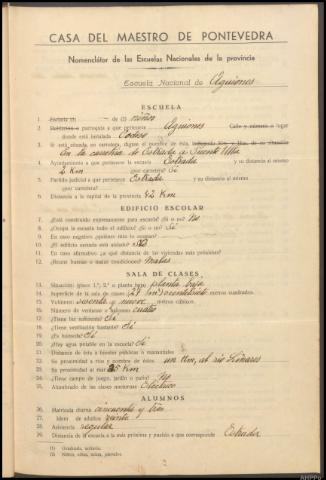 CASA DEL MAESTRO DE PONTEVEDRA
Nomenclátor de las Escuelas Nacionales de la provincia
Escuela Nacional de Aguiones
ESCUELA
1. Escuela (1) de (2) niños
2. parroquia a que pertenece Aguiones Calle y número o lugar
donde está instalada
3. Si está situada en carretera, dígase el nombre de ésta
En la carretera de Estrada a Puente Ulla
4. Ayuntamiento a que pertenece la escuela Estrada y su distancia al mismo
2 Km (por carretera) Sí
5. Partido judicial a que pertenece Estrada y su distancia al mismo
(por carretera)
6. Distancia a la capital de la provincia 42 Km
EDIFICIO ESCOLAR
7. ¿Está construido expresamente para escuela? (Sí o no) No
8. ¿Ocupa la escuela todo el edificio? (Sí o no) Sí
9. En caso negativo ¿quiénes más lo ocupan?
10. ¿El edificio escuela está aislado?
11. En caso afirmativo ¿a qué distancia de las viviendas más próximas?
12. ¿Reune buenas o malas condiciones? malas
SALA DE CLASES
13. Situación: (pisos 1.º, 2.º o planta baja) planta baja
14. Superficie de la sala de clases metros cuadrados.
15. Volúmen: metros cúbicos.
16. Número de ventanas y balcones cuatro
17. ¿Tiene luz suficiente? Sí
18. ¿Tiene ventilación bastante? Sí
19. ¿Es húmeda? Sí
20. ¿Hay agua potable en la escuela? Sí
21. Distancia de ésta a fuentes públicas o manantiales
22. Su proximidad a ríos y nombre de éstos un Km, al río Liñares
23. Su proximidad al mar 25 Km
24. ¿Tiene campo de juego, jardín o patio? No
25. Alumbrado de las clases nocturnas Eléctrico
ALUMNOS
26. Matrícula diurna cincuenta y tres
27. Idem de adultos veinte
28. Asistencia regular
29. Distancia de la escuela a la más próxima y pueblo a que corresponde Estrada
(1) Graduada, unitaria.
(2) Niños, niñas, mixta, párvulos.